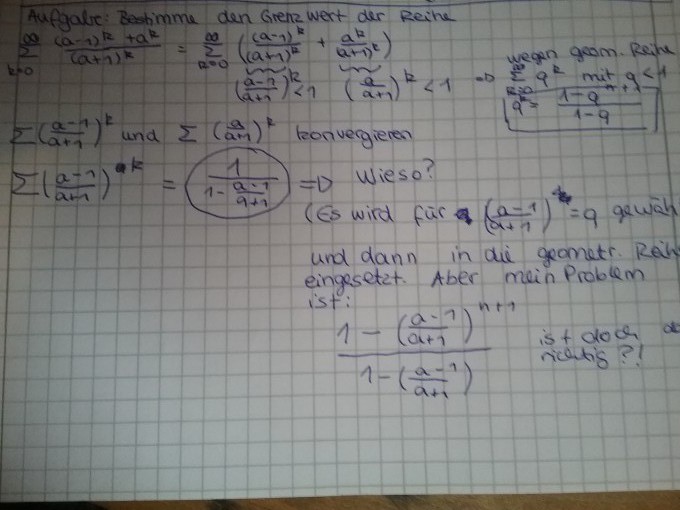 Aufgabe: Bestimme den Grenzwert der Reihe
∞∑k=0 ((a-1)^k + a^k)/((a+1)^k) = ∞∑k=0 ((a-1)^k/(a+1)^k + a^k/(a+1)^k)
((a-1)/(a+1))^k < 1 (a/(a+1))^k < 1 => wegen geom. Reihe
∞∑k=0 q^k mit q < 1
q^k = (1-q^(n+1))/(1-q)
∑ ((a-1)/(a+1))^k und ∑ (a/(a+1))^k konvergieren
∑ ((a-1)/(a+1))^k = 1/(1 - (a-1)/(a+1)) => Wieso?
(Es wird für ((a-1)/(a+1)) = q gewäh
und dann in die geometr. Reih
eingesetzt. Aber mein Problem
ist:
(1 - ((a-1)/(a+1))^(n+1))/(1 - ((a-1)/(a+1))) ist doch
richtig?!